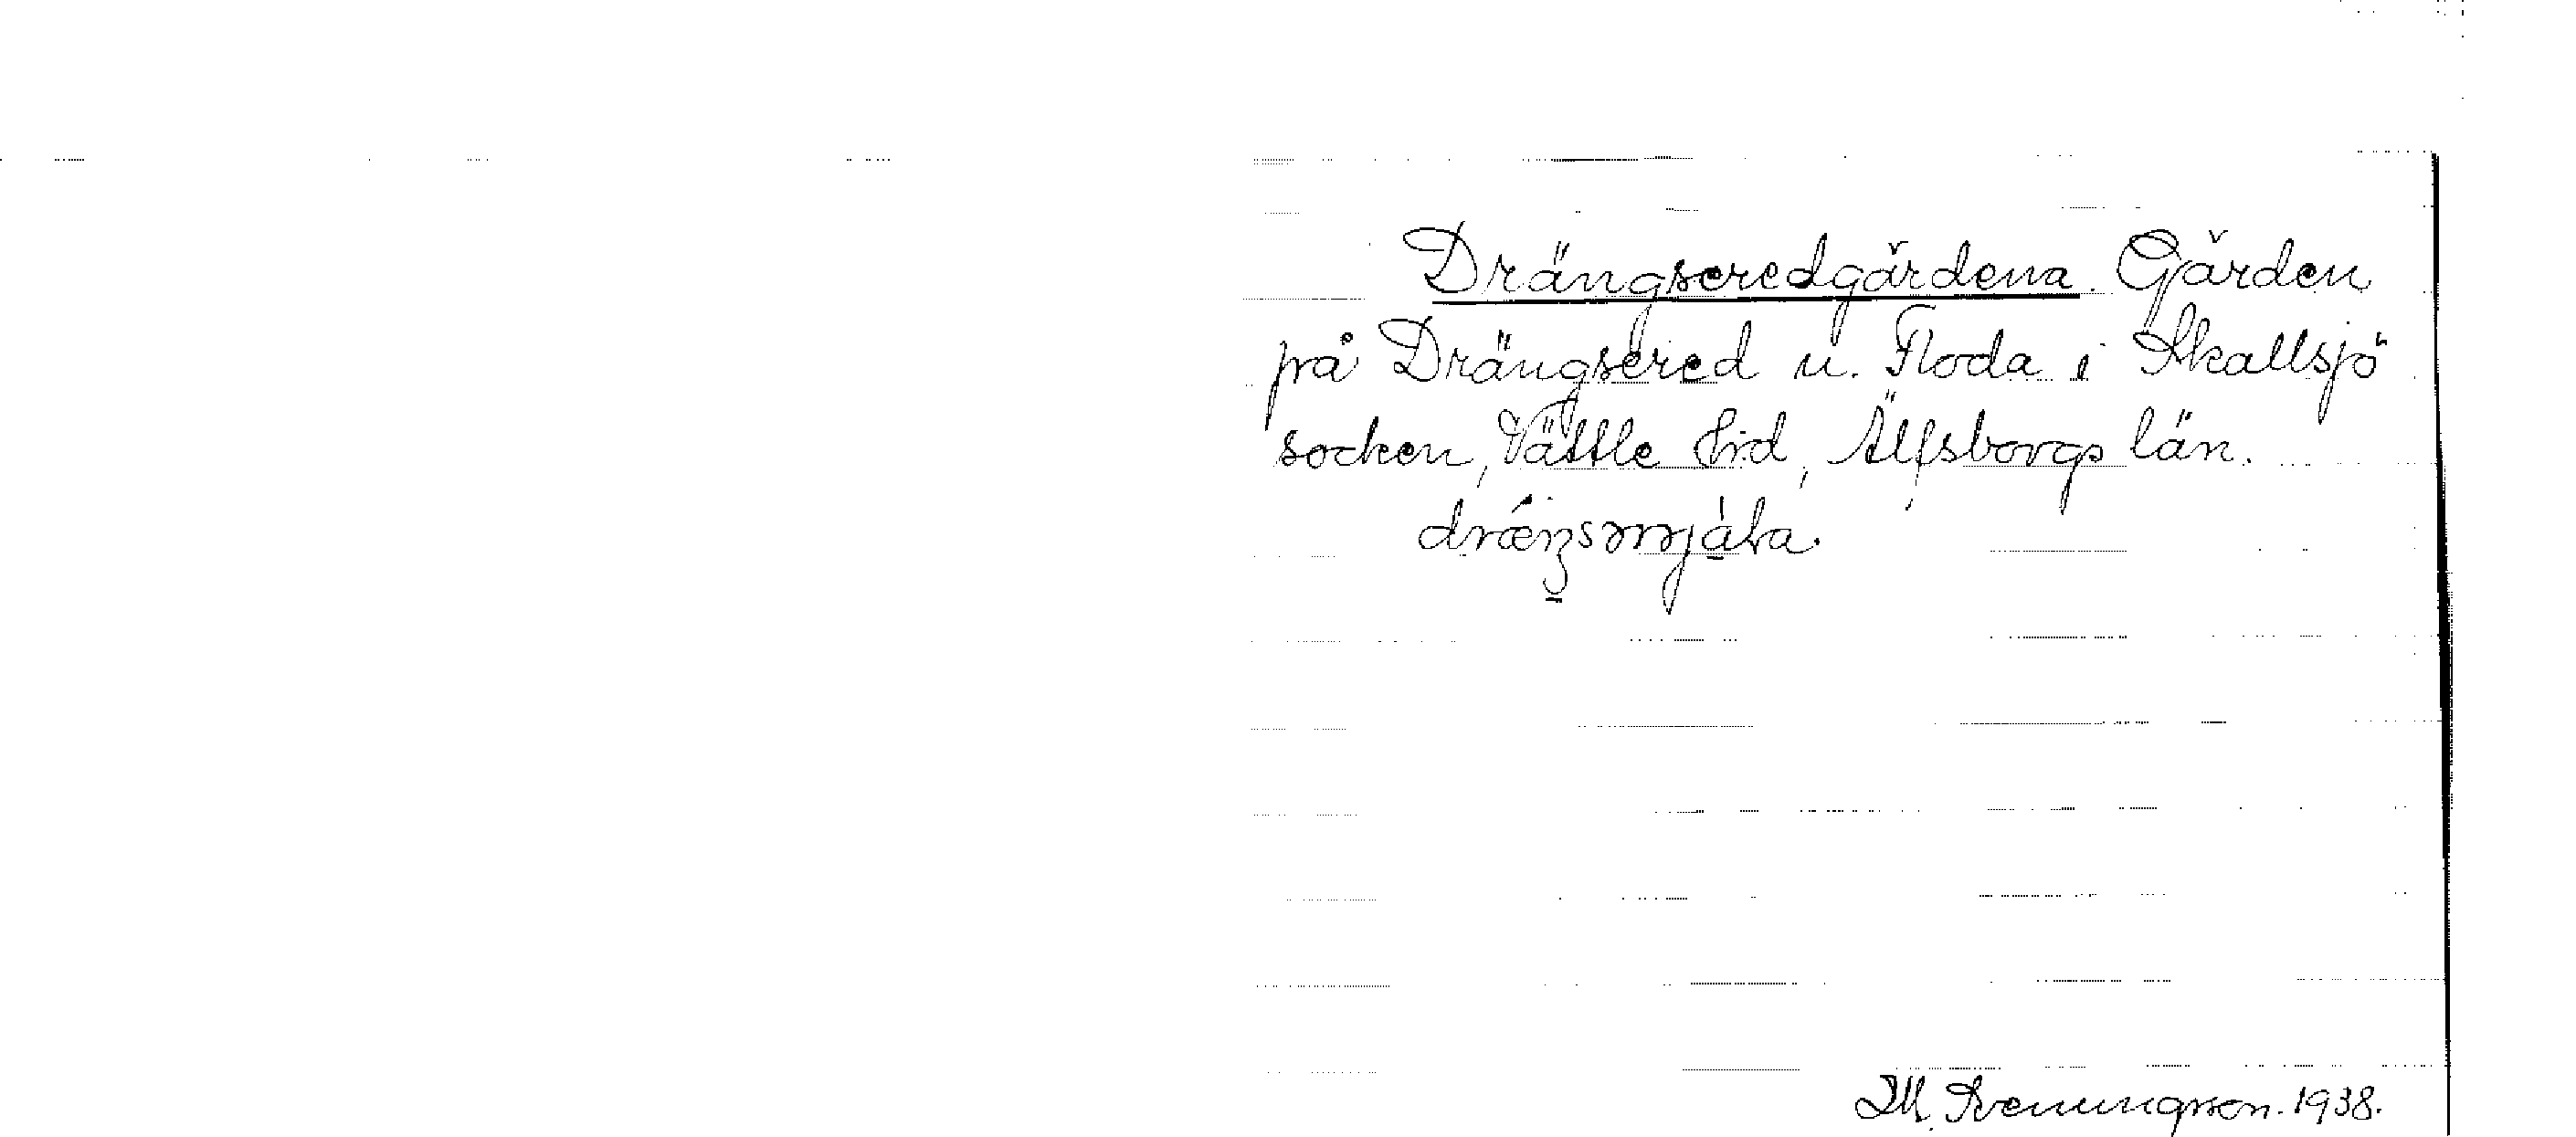 Drängseredgårdena. Gården
på Drängsered u. Floda i Skallsjö
socken, Vättle hrd, Älfsborgs län.
M. Svenungsson. 1938.